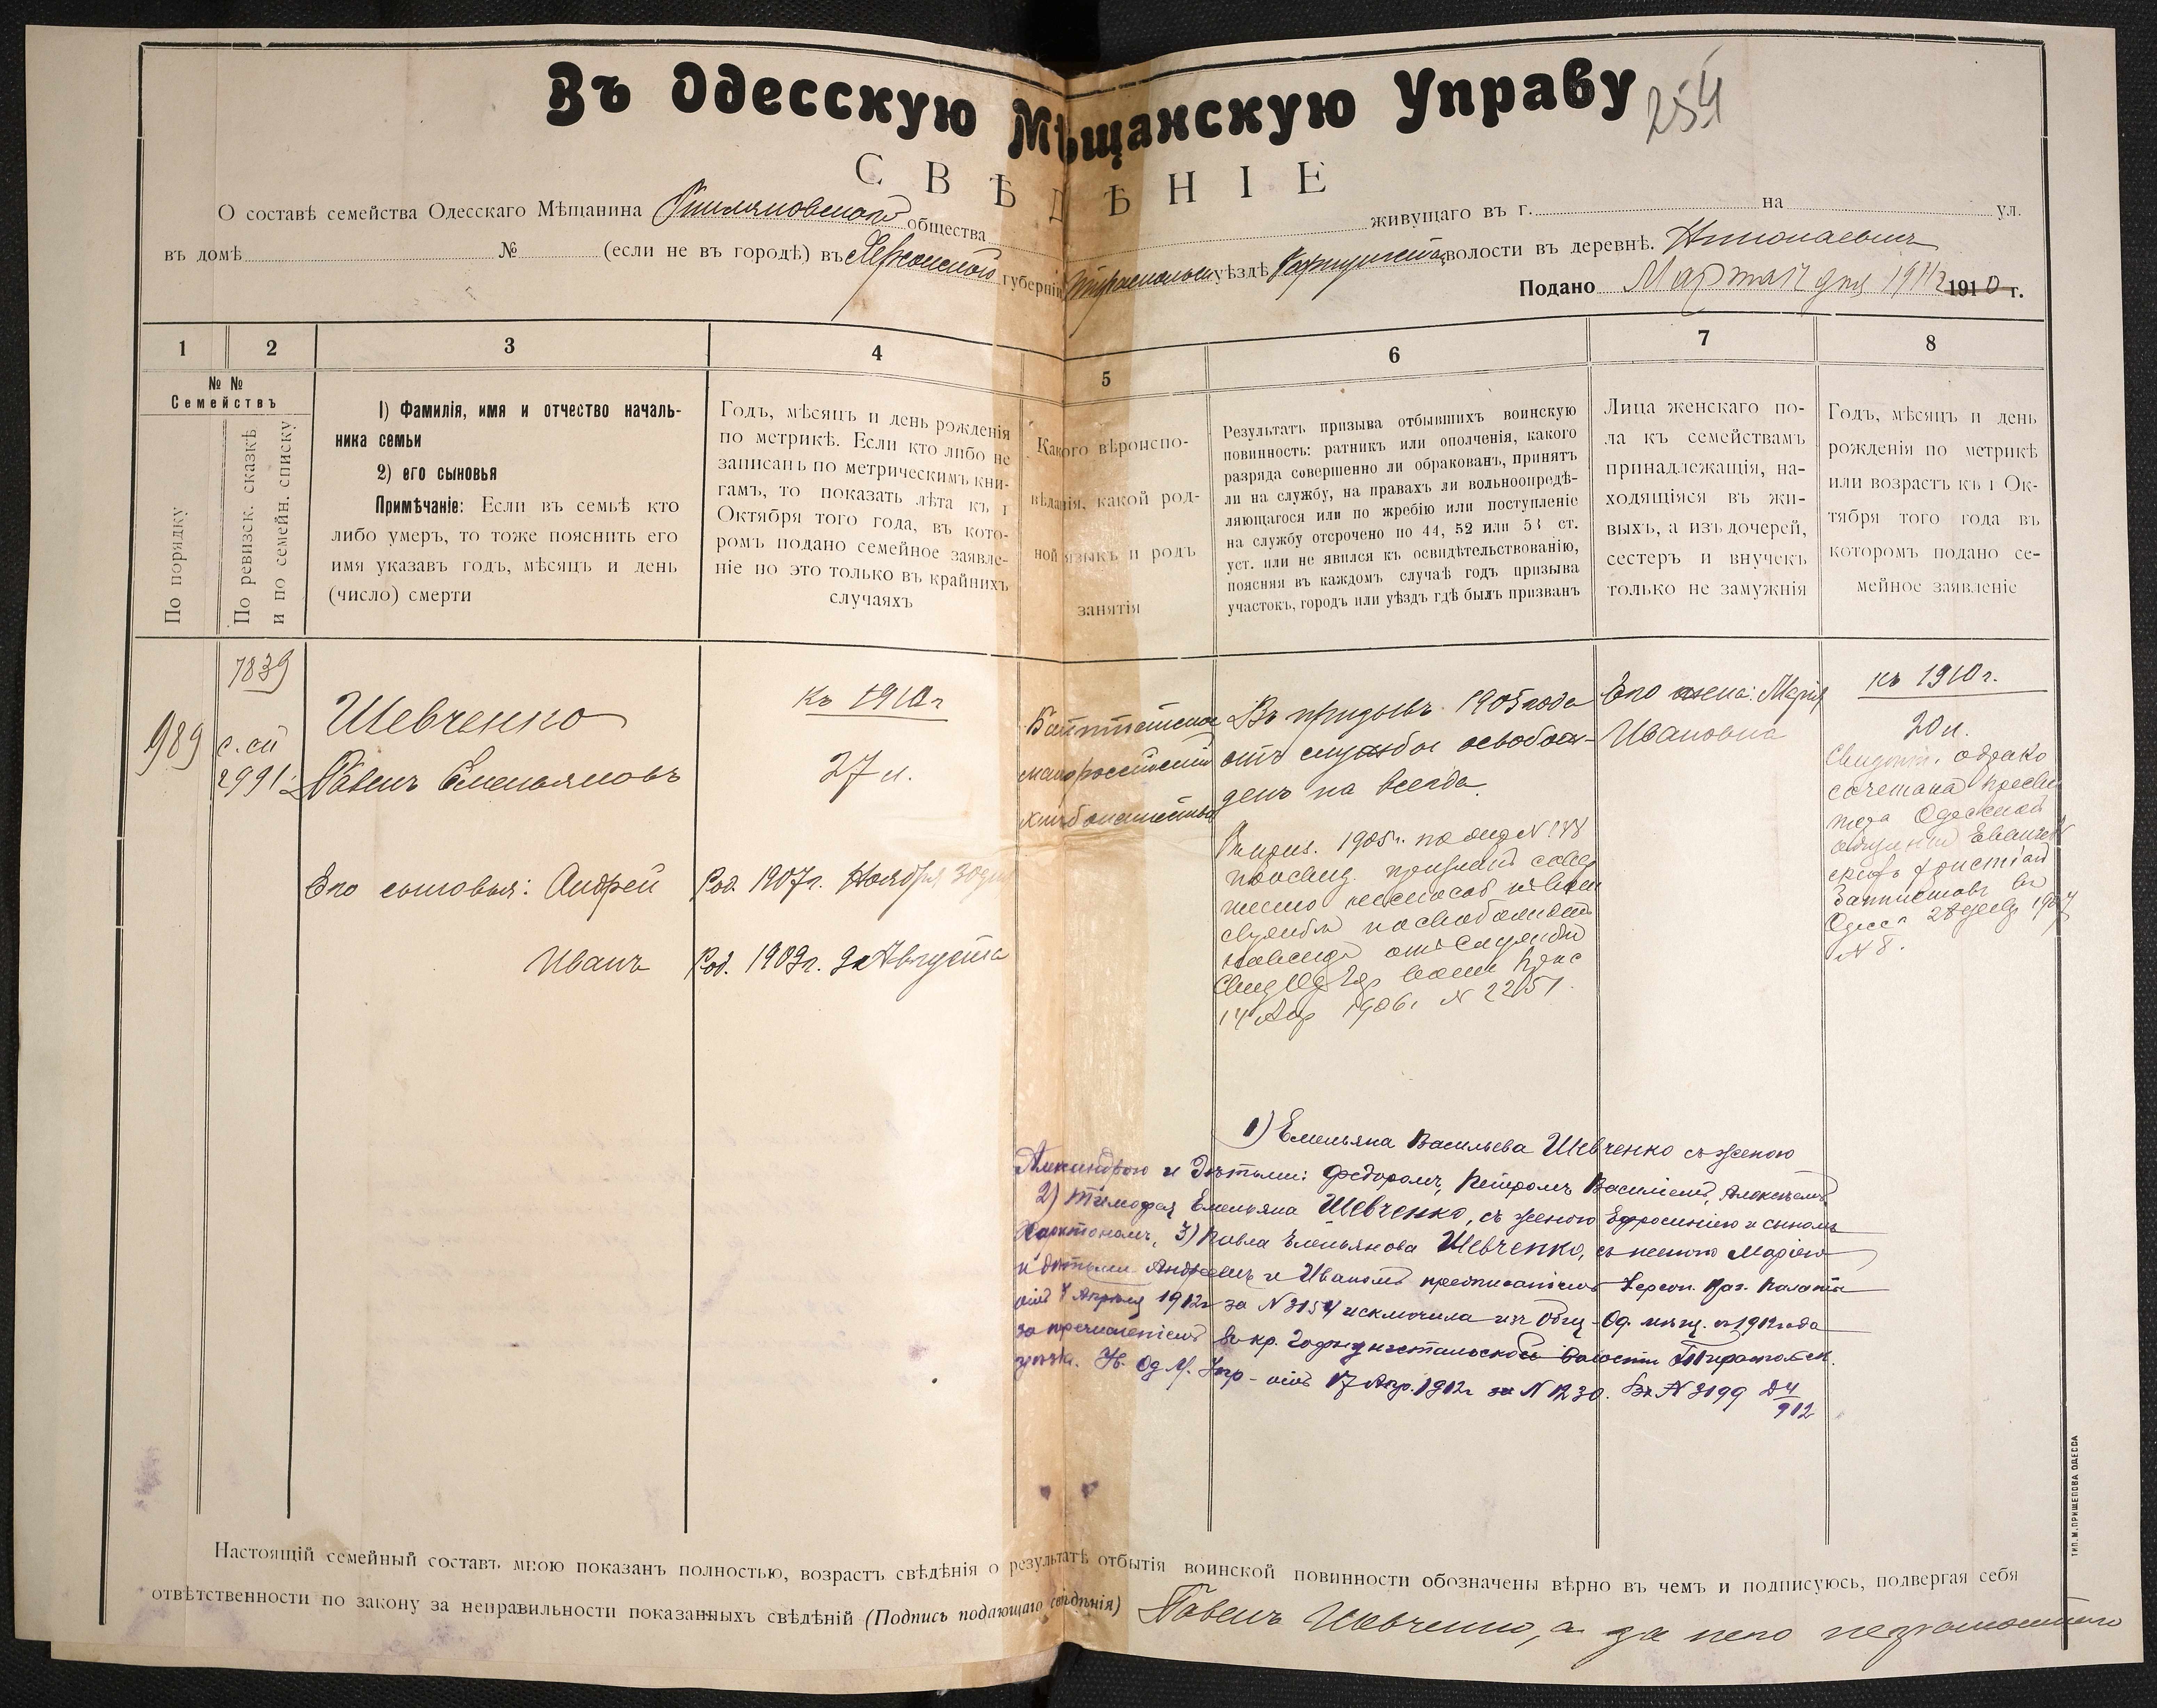 Въ Одесскую Мѣщанскую Управу
254
СВѢДѢНІЕ
О составѣ семейства Одесскаго Мѣщанина общества живущаго въ г. на ул.
въ домѣ № (если не въ городѣ) въ Херсонской губерніи Тираспольском уѣздѣ волости въ деревнѣ. Николаевкѣ
Подано Марта 17 дня 1912 1910 г.
1 2 3 4 5 6 7 8
№ №
Семействъ
По порядку
По ревизск. сказкѣ
и по семейн. списку
1) Фамилія, имя и отчество началь-
ника семьи
2) его сыновья
Примѣчаніе: Если въ семьѣ кто
либо умеръ, то тоже пояснить его
имя указавъ годъ, мѣсяцъ и день
(число) смерти
Годъ, мѣсяцъ и день рожденія
по метрикѣ. Если кто либо не
записанъ по метрическимъ кни-
гамъ, то показать лѣта къ 1
Октября того года, въ кото-
ромъ подано семейное заявле-
ніе но это только въ крайнихъ
случаяхъ
Какого вѣроиспо-
вѣданія, какой род-
ной языкъ и родъ
занятія
Результатъ призыва отбывшихъ воинскую
повинность: ратникъ или ополченія, какого
разряда совершенно ли обракованъ, принятъ
ли на службу, на правахъ ли вольноопредѣ-
ляющагося или по жребію или поступленіе
на службу отсрочено по 44, 52 или 53 ст.
уст. или не явился къ освидѣтельствованію,
поясняя въ каждомъ случаѣ годъ призыва
участокъ, городъ или уѣздъ гдѣ былъ призванъ
Лица женскаго по-
ла къ семействамъ
принадлежащія, на-
ходящіяся въ жи-
выхъ, а изъ дочерей,
сестеръ и внучекъ
только не замужнія
Годъ, мѣсяцъ и день
рожденія по метрикѣ
или возрастъ къ 1 Ок-
тября того года въ
которомъ подано се-
мейное заявленіе
989
7839
2991
Шевченко
Павелъ Емельяновъ
Его сыновья: Андрей
Иванъ
Къ 1910 г
27 л.
Род. 1907 г. Ноября 30 дня
Род. 1909 г. 9 Августа
Баптистское
малороссійскій
хлѣбопашество
Въ призывъ 1905 года
отъ службы освобож-
денъ на всегда.
1905 г.
14 Апр 1906 г N 22151.
Его жена: Марія
Ивановна
къ 1910 г.
20 л.
Одесса 28 1907
N 8.
1) Емельяна Васильева Шевченко съ женою
и дѣтьми: Федоромъ, Петромъ Василіемъ, Алексѣемъ,
2) Тимофея Емельяна Шевченко, съ женою Ефросиніею и сыномъ
Харитономъ, 3) Павла Емельянова Шевченко, съ женою Маріею
и дѣтьми Андреемъ и Иваномъ предписаніемъ Херсон. Каз. Палаты
отъ 4 Апрѣля 1912 г за N 3154 исключила изъ общ. Од. мѣщ. съ 1912 года
за перечисленіемъ въ кр. волости Тираспольск.
уѣзда. Ув. Од. М. Упр. отъ 17 Апр. 1912 г за N 1230. Вх N 3199 24/912
Настоящій семейный составъ мною показанъ полностью, возрастъ свѣдѣнія о результатѣ отбытія воинской повинности обозначены вѣрно въ чемъ и подписуюсь, подвергая себя
отвѣтственности по закону за неправильности показанныхъ свѣдѣній (Подпись подающаго свѣдѣнія) Павелъ Шевченко, а за него неграмотнаго
ТИП. М. ПРИЩЕПОВА ОДЕССА